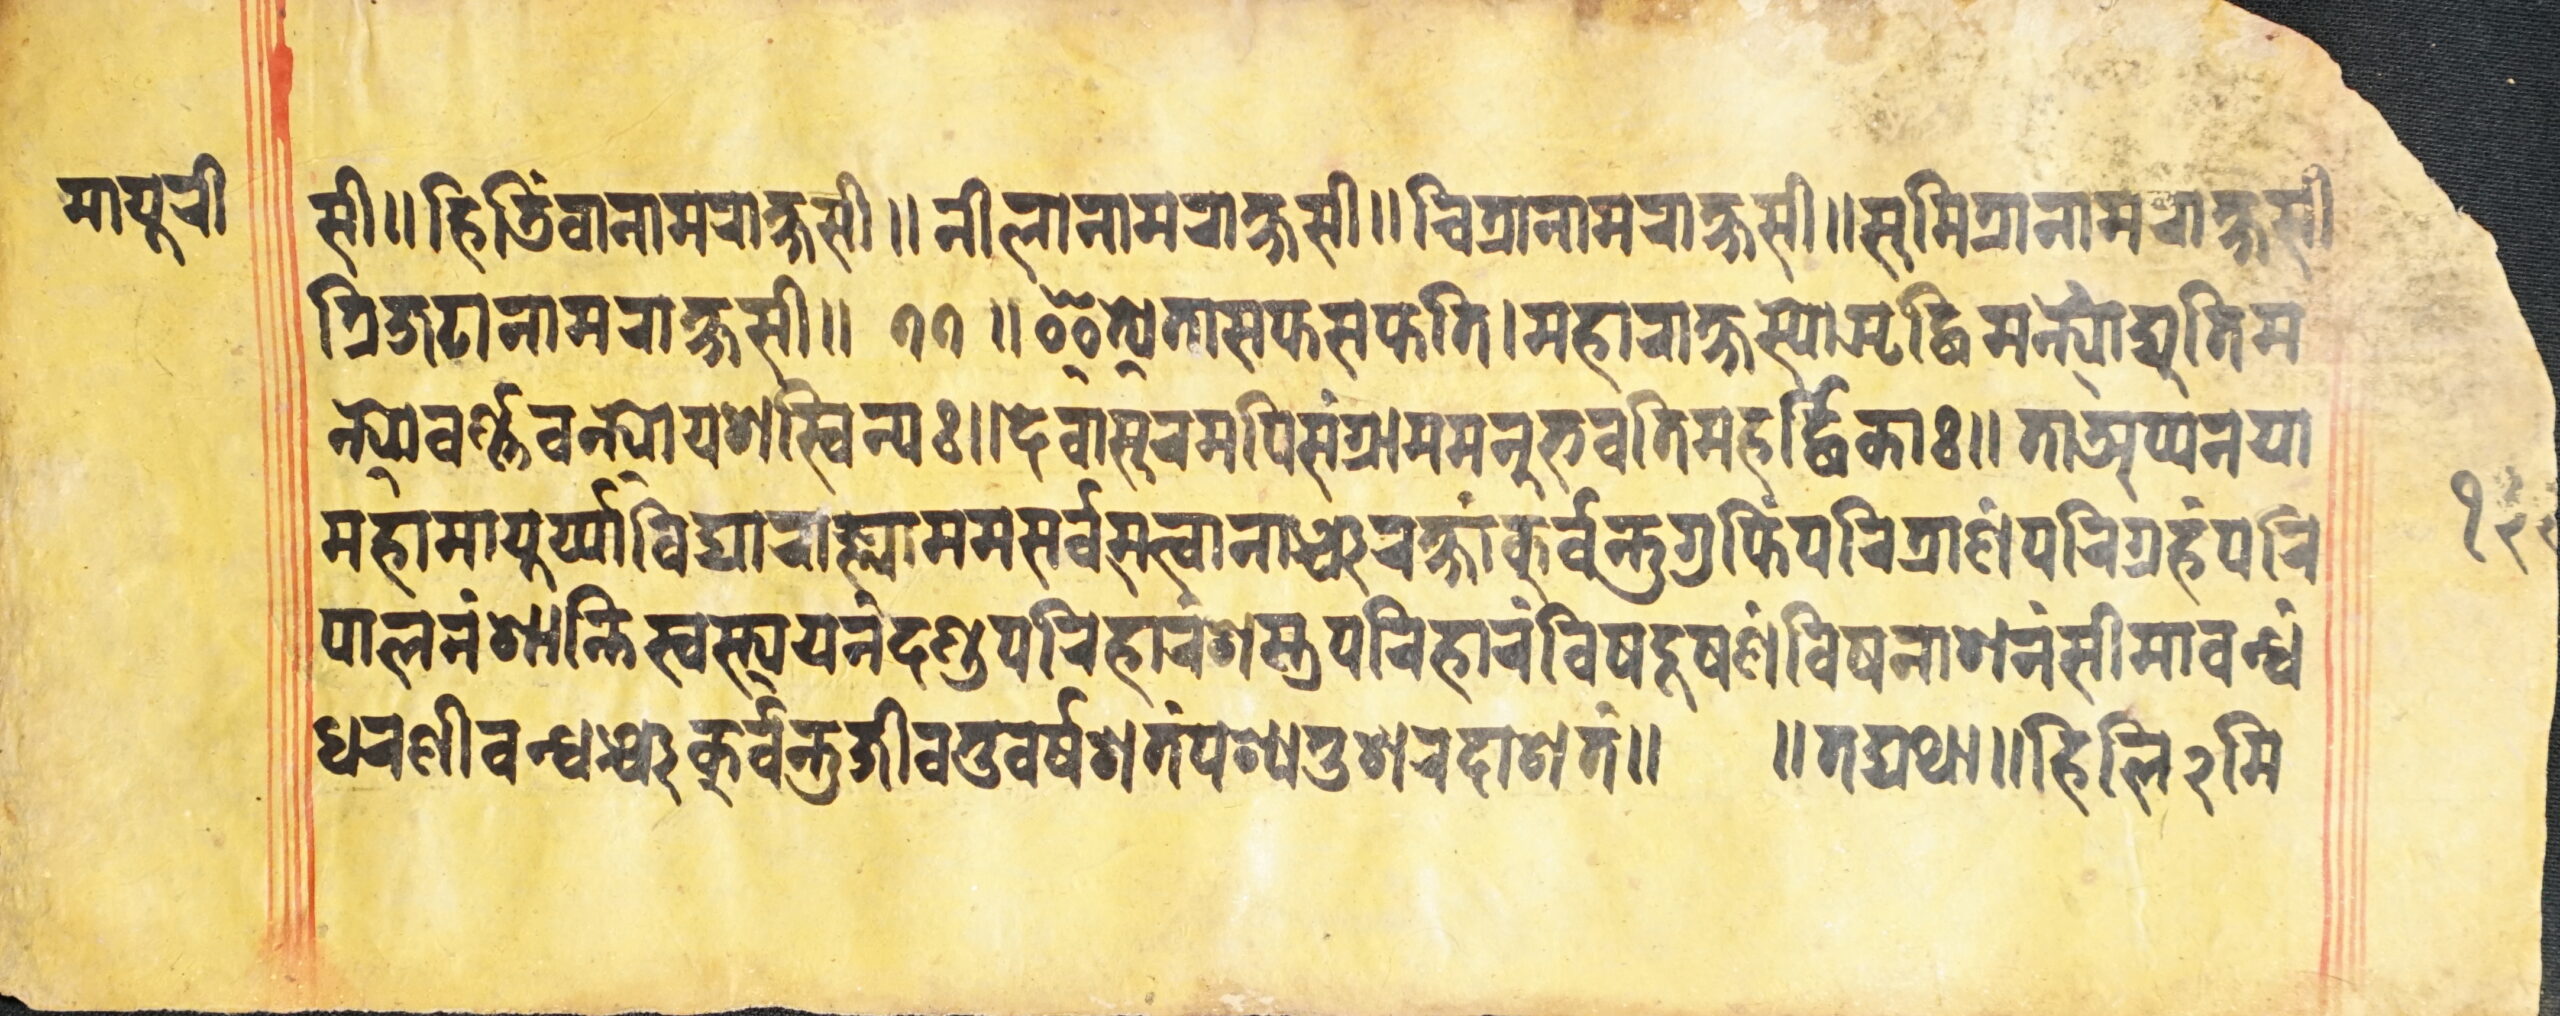 मायुरी
सी॥हितिंवानामराक्षसी॥नीलानामराक्षसी॥चित्रानामराक्षसी॥सुमित्रानामराक्षसी
त्रिजटानामराक्षसी॥ ११ ॥इत्येतासप्तसप्तति।महाराक्षस्योमृद्धिमन्त्योद्युतिम
न्त्योवर्ण्णवन्त्योयशस्विन्यः॥देवासुरमपिसंग्राममनुभवतिमहर्द्धिकाः॥ताअप्यनया
महामायुर्य्याविद्याराज्ञ्याममसर्वसत्वानाञ्चरक्षांकुर्वन्तुगुप्तिंपरित्राणंपरिग्रहंपरि
पालनंशान्तिस्वस्त्ययनंदण्डपरिहारंशस्त्रपरिहारंविषदूषणंविषनाशनंसीमावन्धं
धरणीवन्धञ्चकुर्वन्तुजीवतुवर्षशतंपश्यतुशरदाशतं॥ ॥तद्यथा॥हिलि२मि